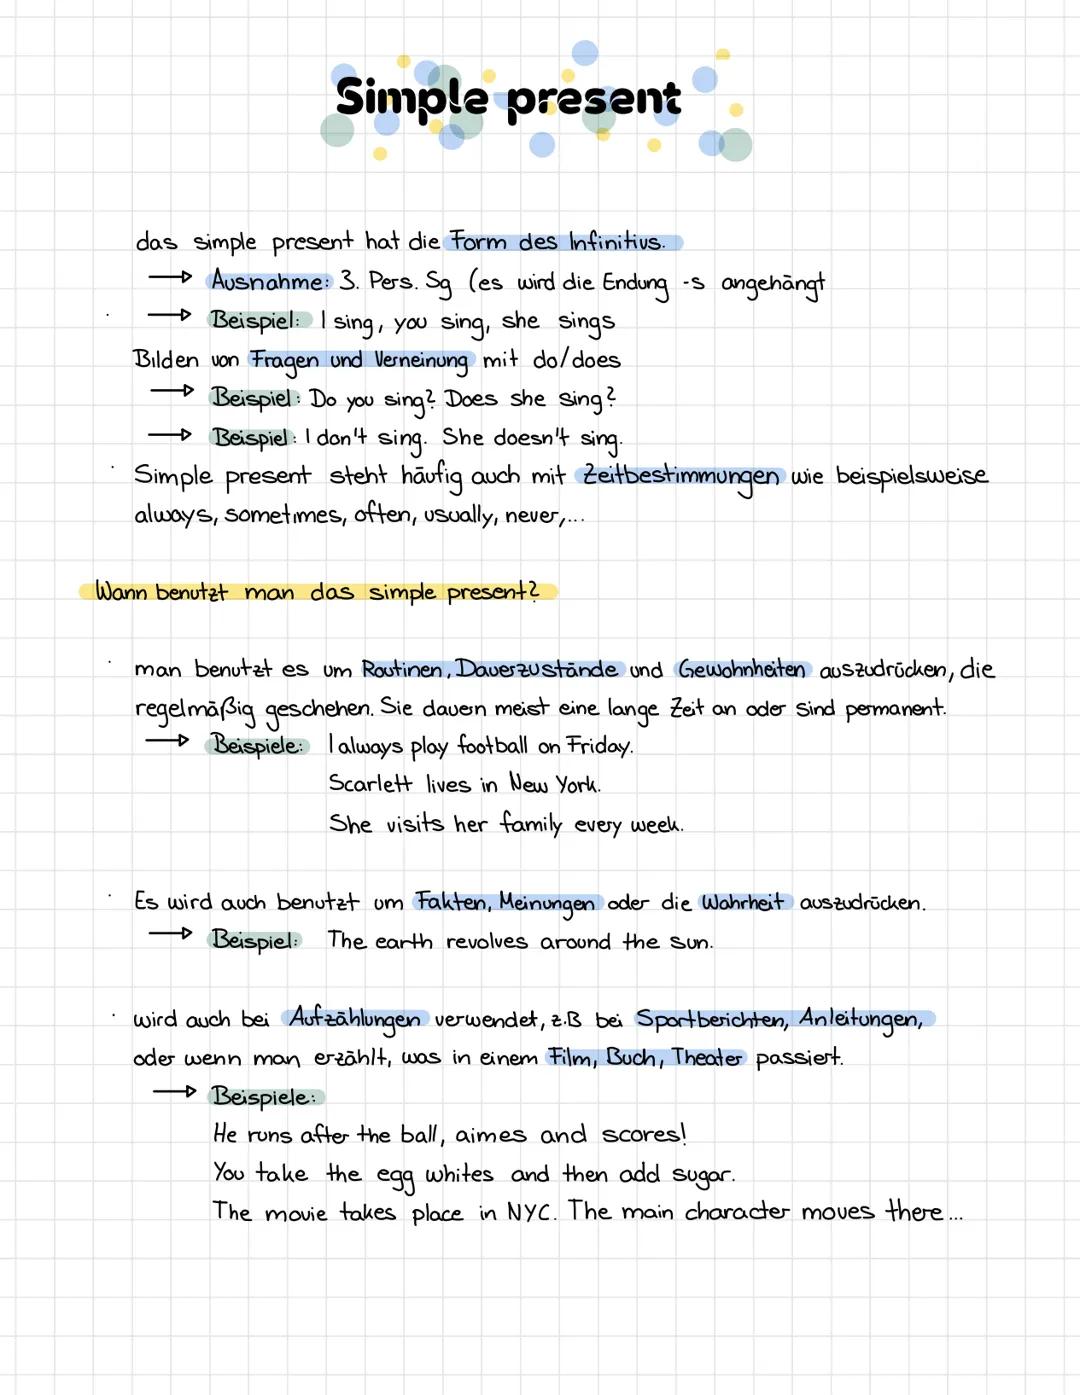 Simple present
das simple present hat die Form des Infinitivs.
→ Ausnahme: 3. Pers. Sg (es wird die Endung -s angehängt
· → Beispiel: I sing, you sing, she sings
Bilden von Fragen und Verneinung mit do/does
→ Beispiel: Do you sing? Does she sing?
→ Beispiel: I don't sing. She doesn't sing.
· Simple present steht häufig auch mit Zeitbestimmungen wie beispielsweise
always, sometimes, often, usually, never,...
Wann benutzt man das simple present?
· man benutzt es um Routinen, Dauerzustände und Gewohnheiten auszudrücken, die
regelmäßig geschehen. Sie dauern meist eine lange Zeit an oder sind permanent.
→ Beispiele: I always play football on Friday.
Scarlett lives in New York.
She visits her family every week.
· Es wird auch benutzt um Fakten, Meinungen oder die Wahrheit auszudrücken.
→ Beispiel: The earth revolves around the sun.
· wird auch bei Aufzählungen verwendet, z.B bei Sportberichten, Anleitungen,
oder wenn man erzählt, was in einem Film, Buch, Theater passiert.
→ Beispiele:
He runs after the ball, aimes and scores!
You take the egg whites and then add sugar.
The movie takes place in NYC. The main character moves there...